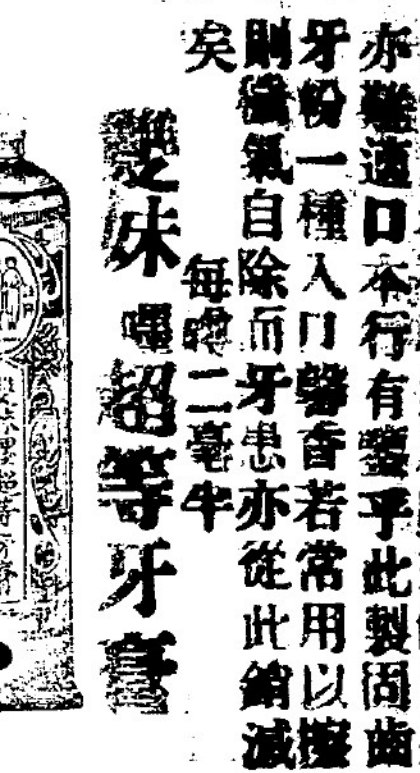 亦難適口本行有鑒乎此製固齒
牙粉一種入口馨香若常用以擦
則穢氣自除而牙患亦從此銷滅
矣
每二毫半
雙妹嚜超等牙膏